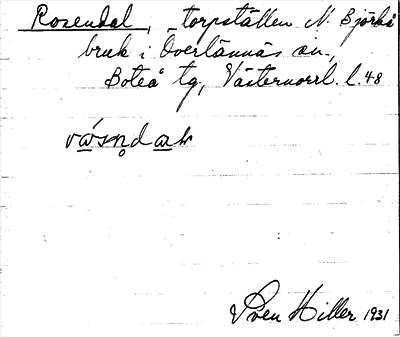 Rosendal, torpställen N. Björkå
bruk i Överlännäs sn,
Boteå tg, Västernorrl. l. 48
Sven Hiller 1931